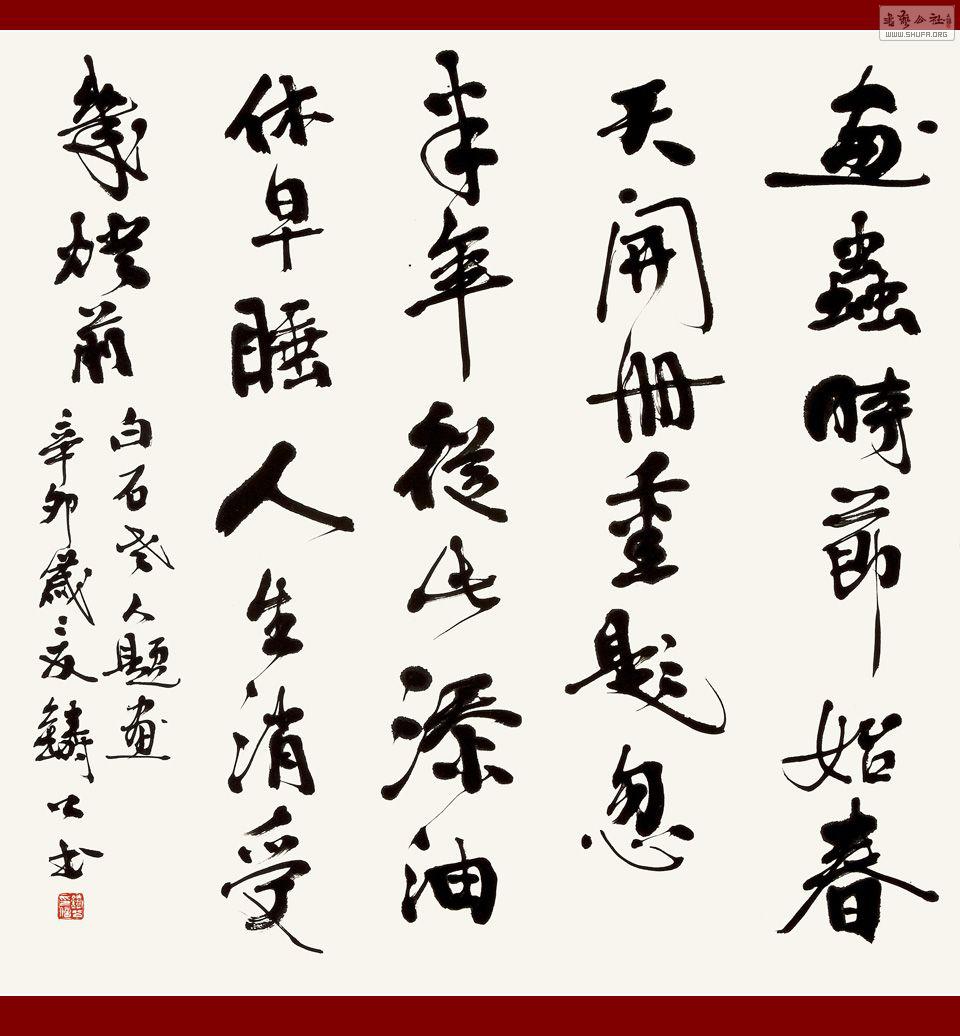 画蟲時節始春
天開冊重題忽
半年從此添油
休早睡人生消受
幾燈前
白石老人題画
辛卯歲鑄公书
书藝公社
WWW.SHUFA.ORG